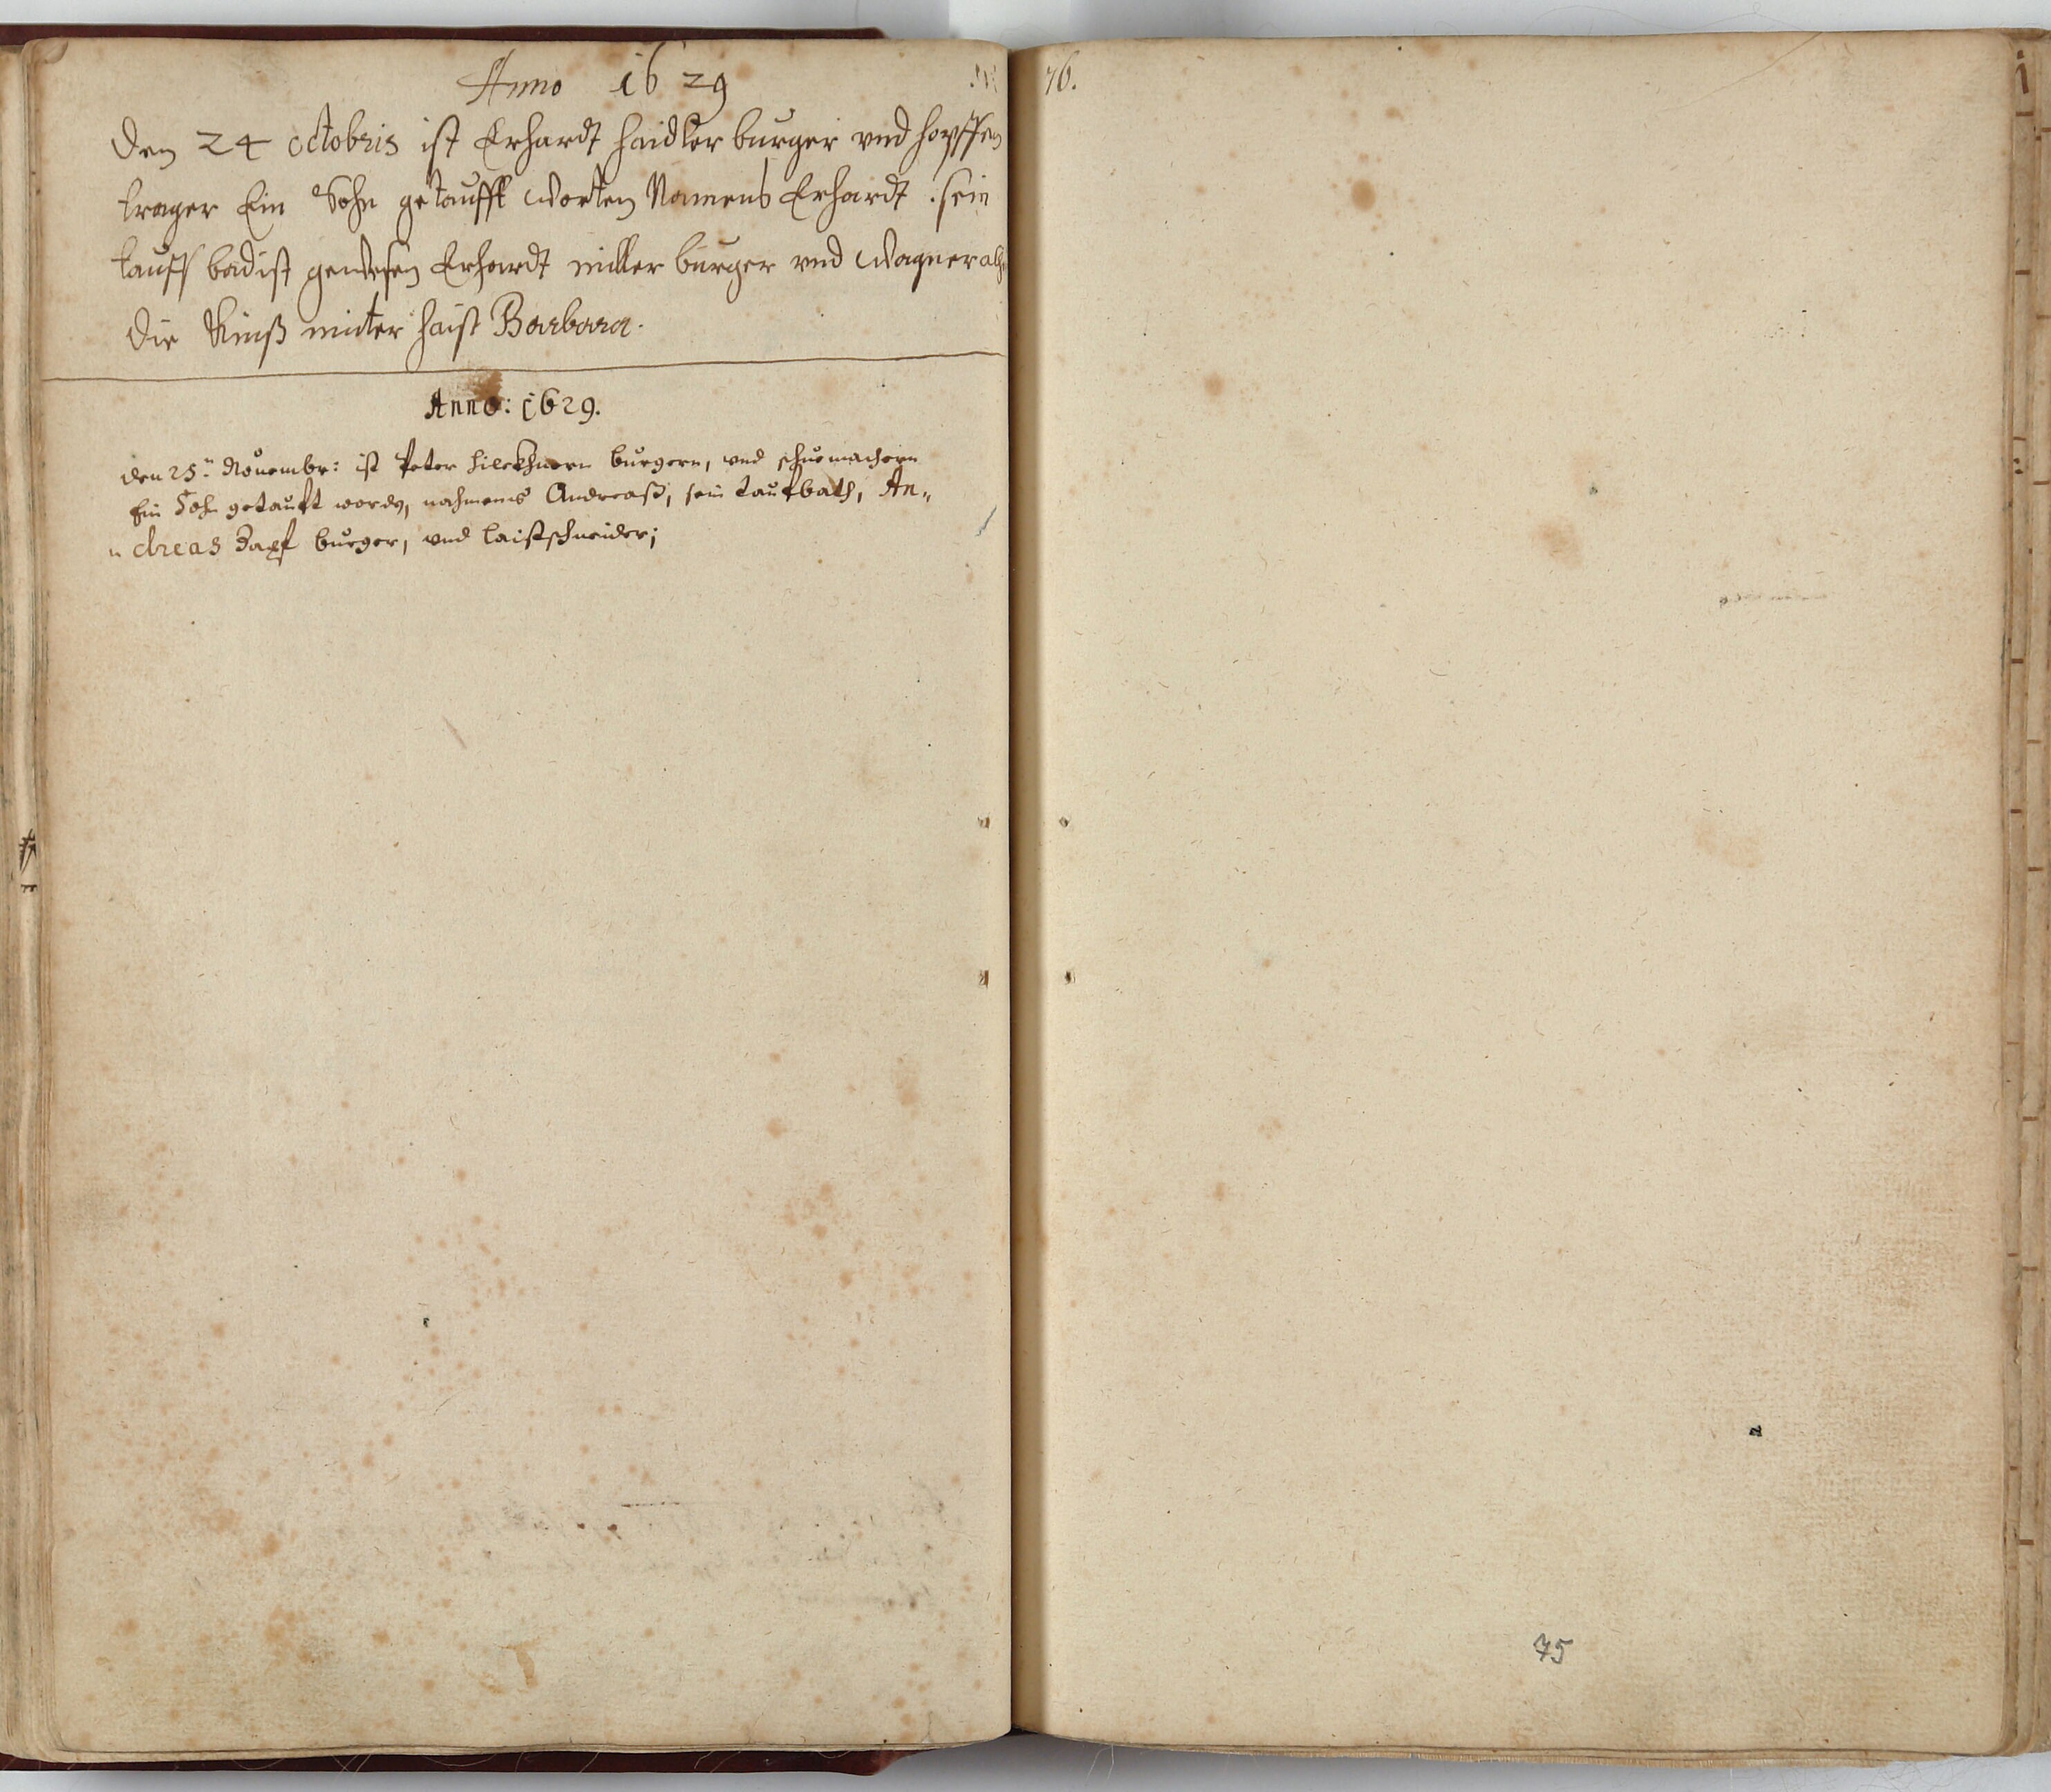 Anno 1629
Den 24 octobris ist Erhardt haidler burger vnd hopffen
trager Ein Sohn getaufft worten Namens Erhardt . sein
tauff bad ist gewesen Erhardt miller burger vnd Wagner alh
die Kinß muter haist Barbara.
Anno: 1629.
den 25.n Nouembr: ist Peter burgern, vnd schuemachern
Ein Sohn getauft wordn, nahmens Andreaß, sein taufbath, An„
„ dreas Zapf burger, vnd laistschneider;
76.
75